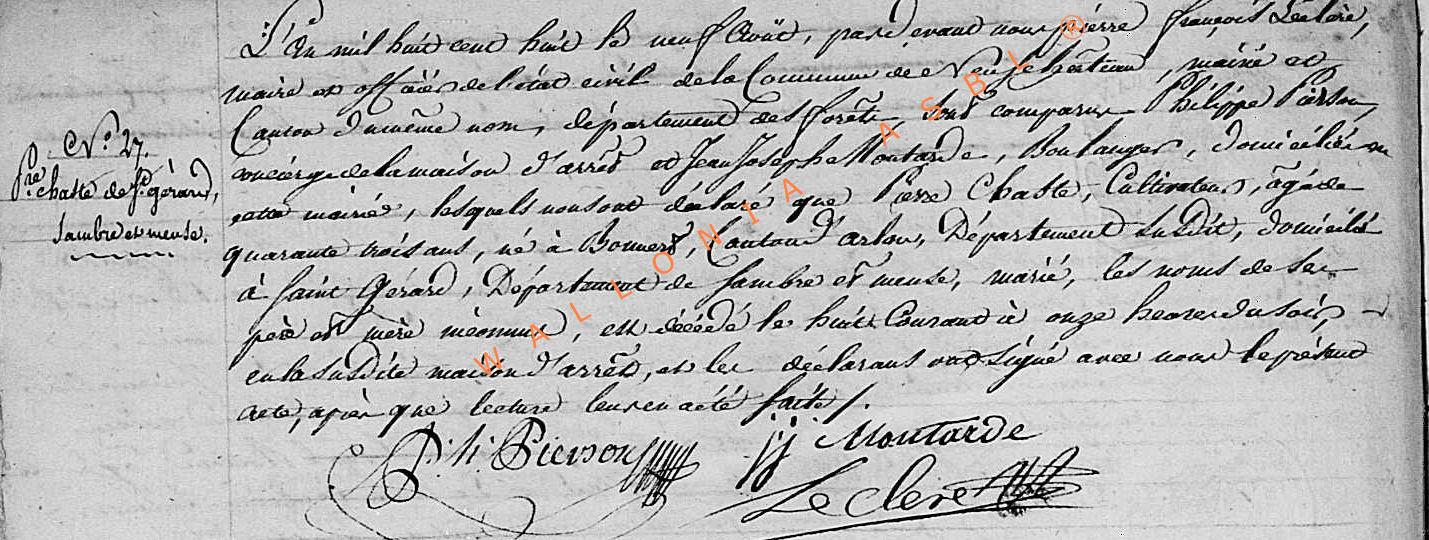 N.° 27.
Pre Chatte de St. gérard,
Sambre et meuse.
L'an mil huit cent huit le neuf Août, pardevant nous pierre françois Leclere,
maire et officier de l'état civil de la Commune de Neufchâteau, mairie et
Canton du même nom, département des forêts, sont comparus Philippe Pierson,
concierge de la maison d'arrêt et Jean Joseph Moutarde, Boulanger, domiciliés en
cette mairie, lesquels nous ont déclaré que Pierre Chatte, Cultivateur, âgé de
quarante trois ans, né à Bonnert, Canton d'arlon, Département susdit, domicilié
à Saint Gérard, Département de Sambre et meuse, marié, les noms de ses
père et mère inconnus, est décédé le huit Courant à onze heures du soir,
en la susdite maison d'arrêt, et les déclarans ont signé avec nous le présent
acte, après que lecture leur en a été faite /.
Ph. Pierson jj Moutarde
Leclere
WALLONIA ASBL ®